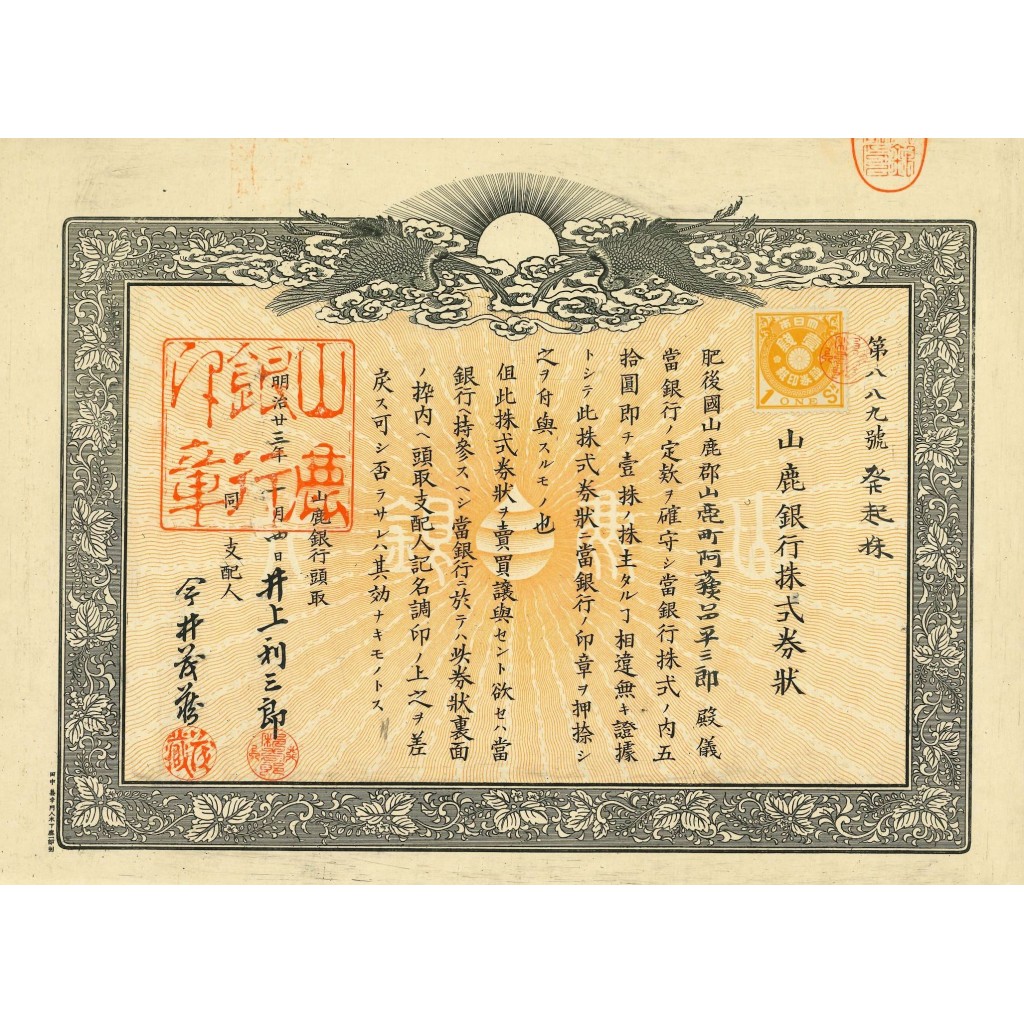 第八八九號 発起株
山鹿銀行株式券狀
肥後國山鹿郡山鹿町阿 平三郎 殿儀
當銀行ノ定欵ヲ確守シ當銀行株式ノ内五
拾圓即チ壹株ノ株主タルヿ相違無キ證據
トシテ此株式券狀ニ當銀行ノ印章ヲ押捺シ
之ヲ付與スルモノ也
但此株式券狀ヲ賣買譲與セント欲セハ當
銀行ヘ持參スヘシ當銀行ニ於テハ此券狀裏面
ノ枠内ヘ頭取支配人記名調印ノ上之ヲ差
戻ス可シ否ラサレハ其効ナキモノトス
明治廿三年 月四日
山鹿銀行頭取
井上利三郎
同 支配人
今井茂藏
山鹿銀行印章
1 ONE Sn
茂藏